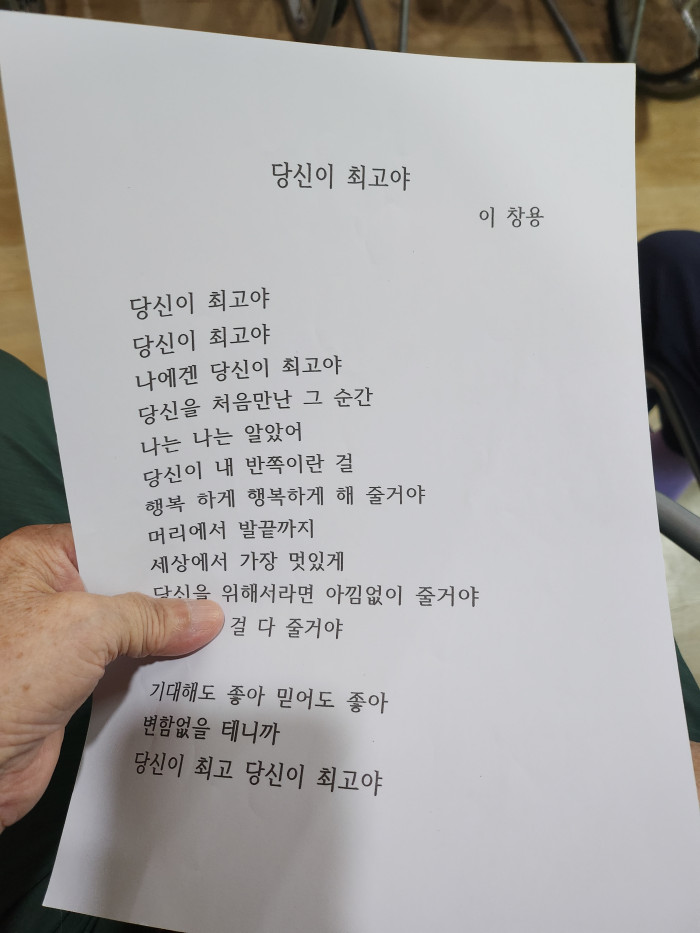 당신이 최고야
이 창용
당신이 최고야
당신이 최고야
나에겐 당신이 최고야
당신을 처음만난 그 순간
나는 나는 알았어
당신이 내 반쪽이란 걸
행복 하게 행복하게 해 줄거야
머리에서 발끝까지
세상에서 가장 멋있게
당신을 위해서라면 아낌없이 줄거야
걸 다 줄거야
기대해도 좋아 믿어도 좋아
변함없을 테니까
당신이 최고 당신이 최고야